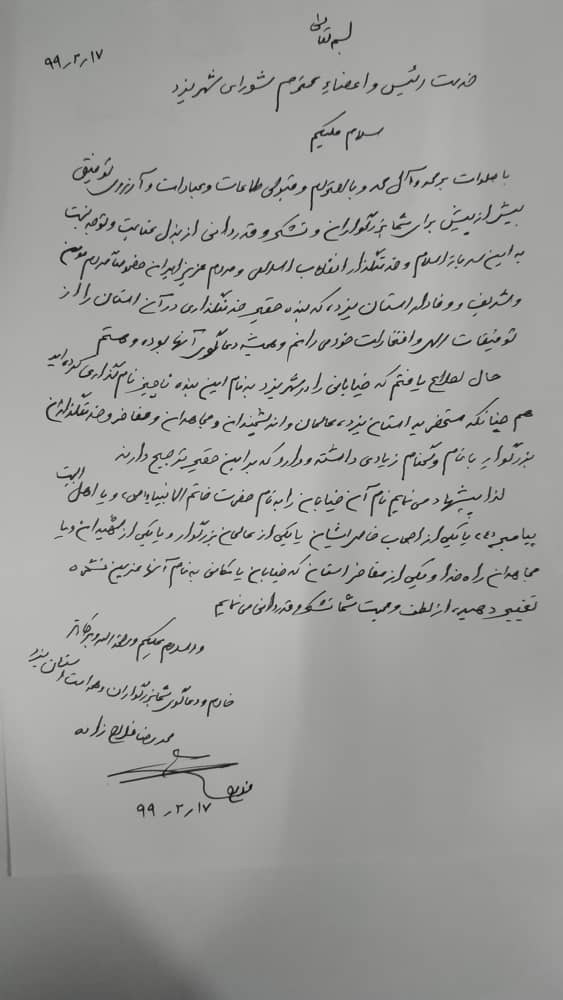 بسمه تعالی
۹۹٫۲٫۱۷
خدمت رئیس و اعضاء محترم شورای شهر یزد
سلام علیکم
با صلوات بر محمد و آل محمد و با قبولی طاعات و عبادات و آرزوی توفیق
بیش از پیش برای شما بزرگواران و تشکر و قدردانی از بذل عنایت و توجه نسبت
به این سرباز اسلام و خدمتگذار انقلاب اسلامی و مردم عزیز ایران خصوصاً مردم مومن
و شریف و وفادار استان یزد، که بنده حقیر خدمتگذاری در آن استان را از
توفیقات الهی و افتخارات خود می دانم و همیشه دعاگوی آنها بوده و هستم
حال اطلاع یافتم که خیابانی را در شهر یزد به نام این بنده ناچیز نام گذاری کرده اید
هم چنانکه مستحضرید استان یزد، عالمان و اندیشمندان و مجاهدان و مفاخر و خدمتگذاران
بزرگوار با نام و گمنام زیادی داشته و دارد که بر این حقیر ترجیح دارند
لذا پیشنهاد می نمایم نام آن خیابان را به نام حضرت خاتم الانبیاء (ص) و یا اهل البیت
پیامبر (ص)، یا یکی از اصحاب خاص ایشان یا یکی از عالمان بزرگوار و یا یکی از شهیدان و یا
مجاهدان راه خدا و یکی از مفاخر استان که خیابان یا مکانی به نام آنها مزین نشده
تغییر دهید، از لطف و محبت شما تشکر و قدردانی می نمایم
والسلام علیکم و رحمة الله و برکاته
خادم و دعاگوی شما بزرگواران و همه امت استان یزد
محمدرضا فلاح زاده
فلاح
۹۹٫۲٫۱۷